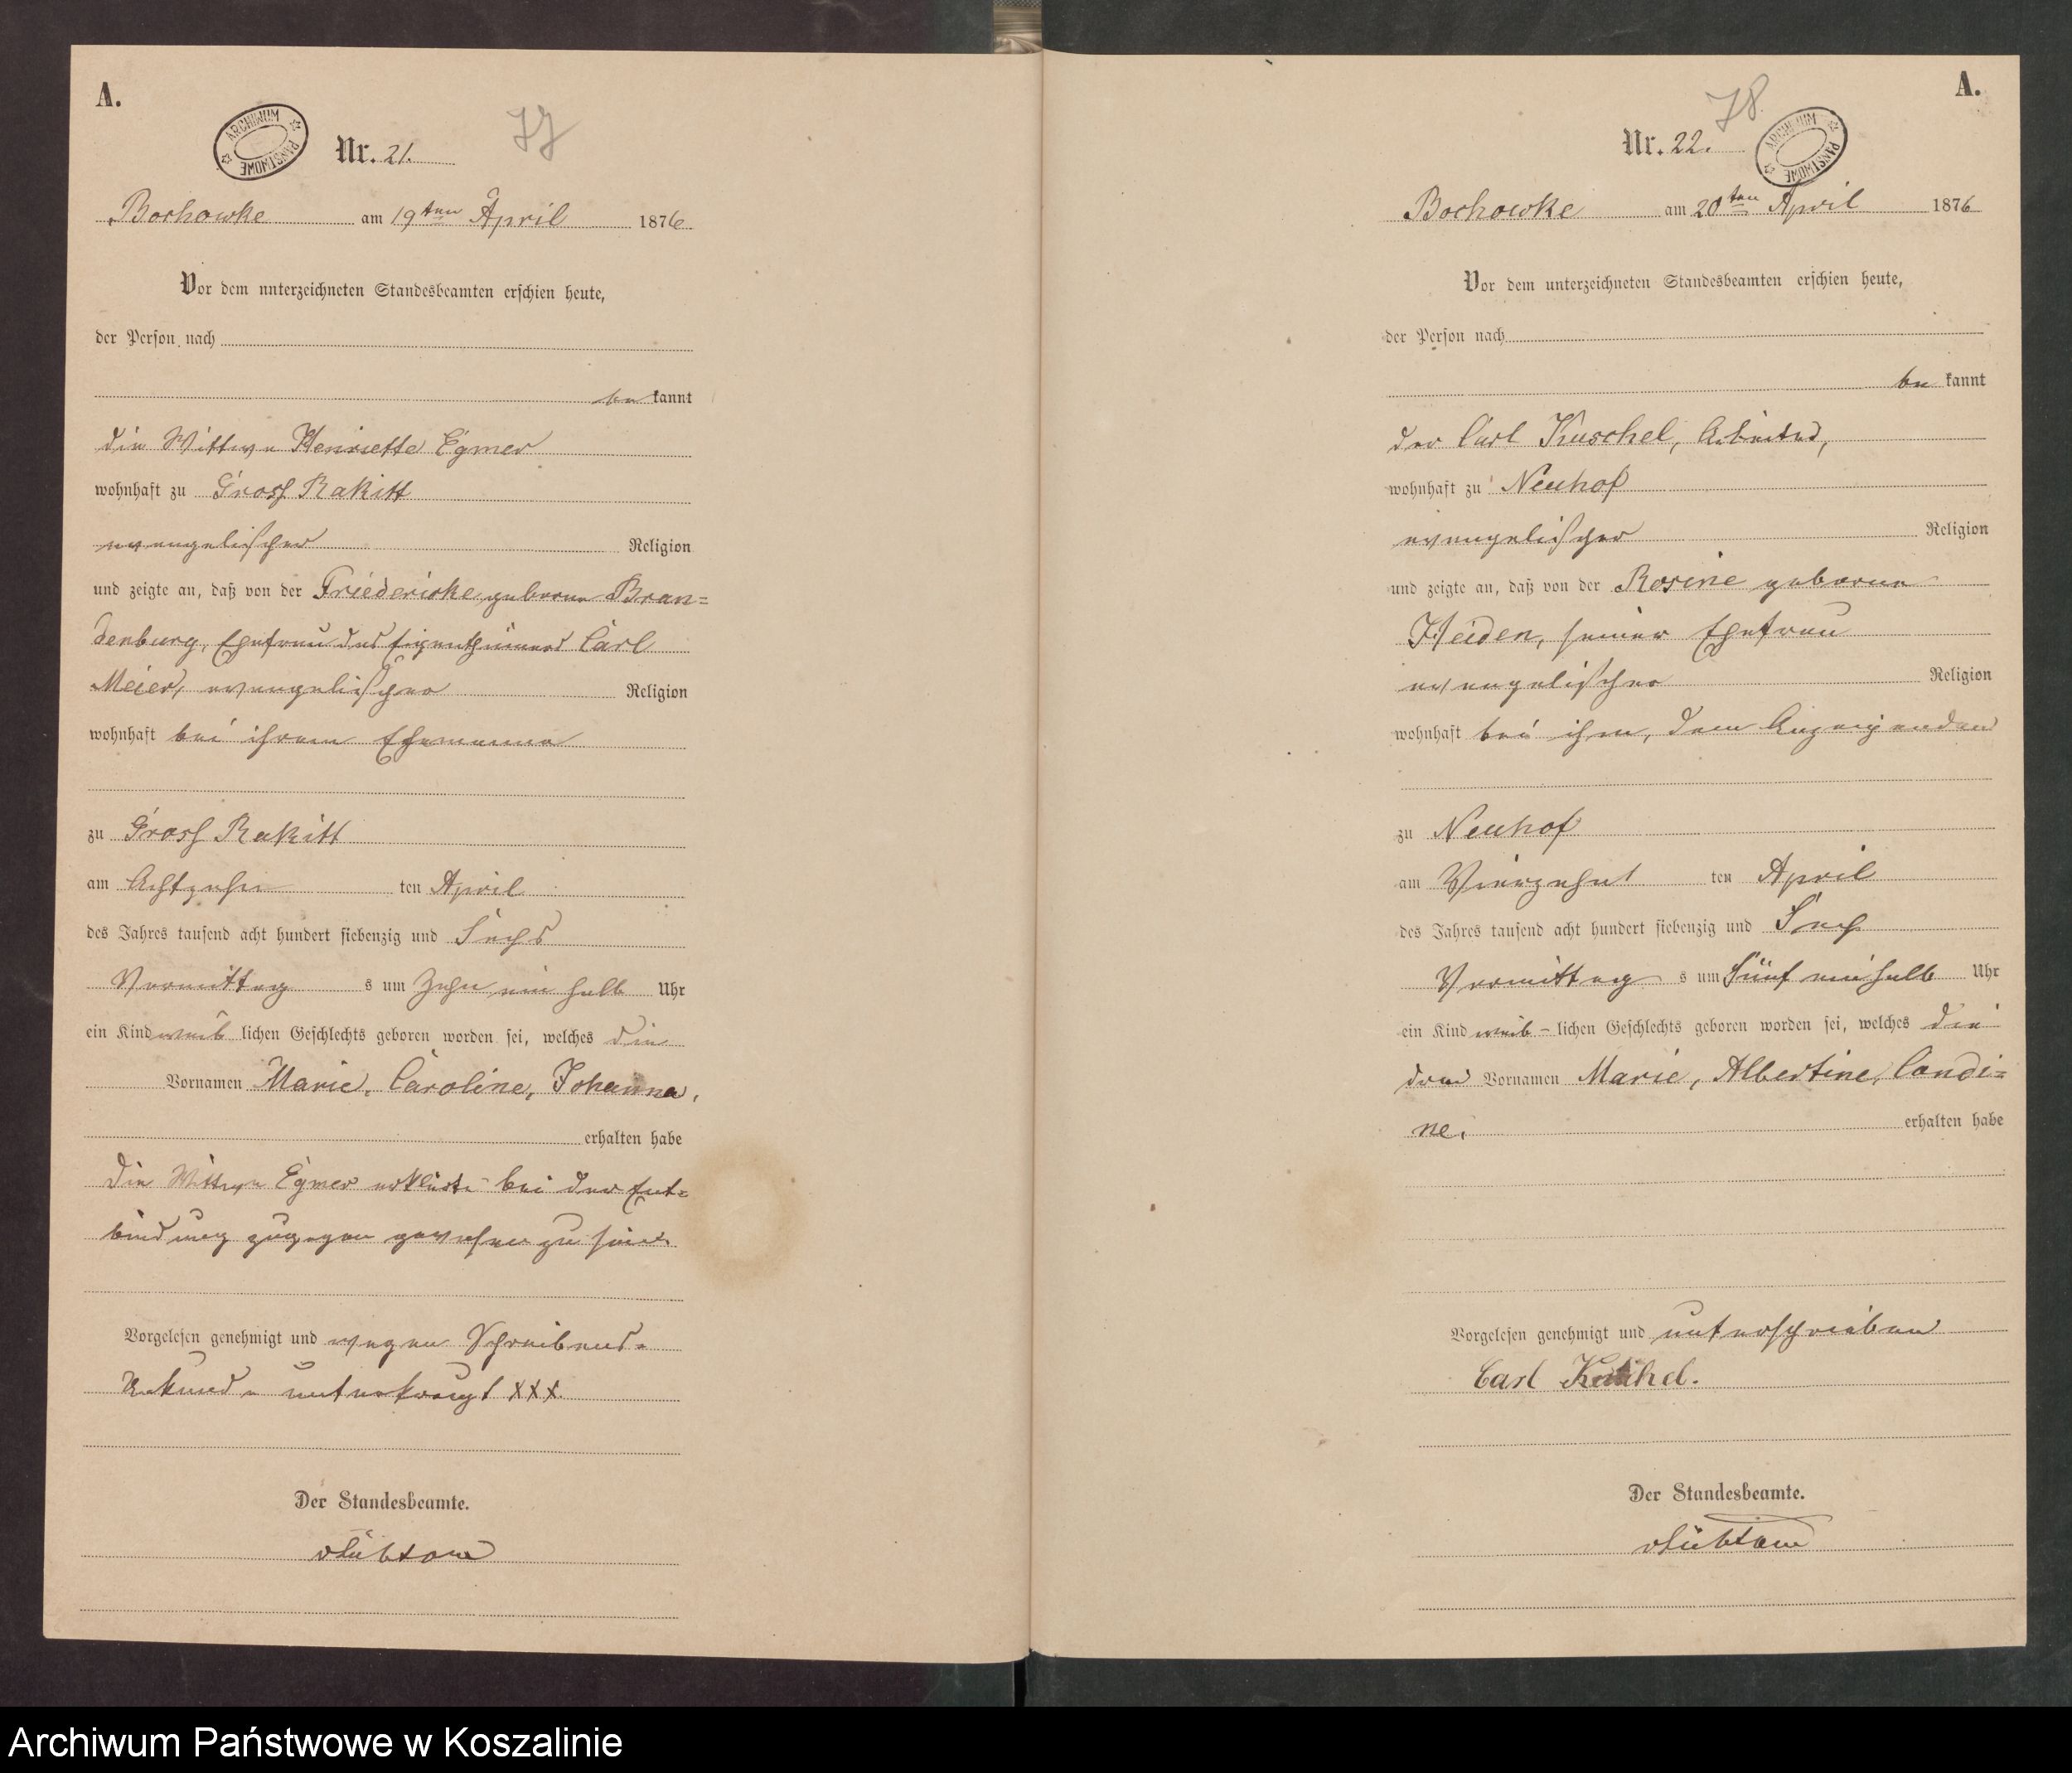 A.
ARCHIWUM PANSTWOWE
Nr. 21.
77
Bochowke am 19ten April 1876
Vor dem unterzeichneten Standesbeamten erschien heute,
der Person nach
be kannt
die Wittwe Henriette Egmer
wohnhaft zu Gross Rakitt
evangelischer Religion
und zeigte an, daß von der Friedericke geborne Bran=
denburg, Ehefrau des Eigenthümers Carl
Meier, evangelischer Religion
wohnhaft bei ihrem Ehemanne
zu Gross Rakitt
am Achtzehn ten April
des Jahres tausend acht hundert siebenzig und Sechs
Vormittag s um Zehn ein halb Uhr
ein Kind weib lichen Geschlechts geboren worden sei, welches die
Vornamen Marie, Caroline, Johanna,
erhalten habe
Die Wittwe Egmer erklärte bei der Ent=
bindung zugegen gewesen zu sein.
Vorgelesen genehmigt und wegen Schreibens-
Unkunde unterkreuzt XXX
Der Standesbeamte.
A.
78.
Nr. 22.
ARCHIWUM PANSTWOWE
Bochowke am 20ten April 1876
Vor dem unterzeichneten Standesbeamten erschien heute,
der Person nach
be kannt
der Carl Kuschel, Arbeiter,
wohnhaft zu Neuhof
evangelischer Religion
und zeigte an, daß von der Rosine geborne
Heiden, seiner Ehefrau
evangelischer Religion
wohnhaft bei ihm, dem Anzeigenden
zu Neuhof
am Vierzehnt ten April
des Jahres tausend acht hundert siebenzig und Sechs
Vormittag s um Fünf ein halb Uhr
ein Kind weib - lichen Geschlechts geboren worden sei, welches die
drei Vornamen Marie, Albertine, Candi=
ne. erhalten habe
Vorgelesen genehmigt und unterschrieben
Carl Kuschel.
Der Standesbeamte.
Archiwum Państwowe w Koszalinie